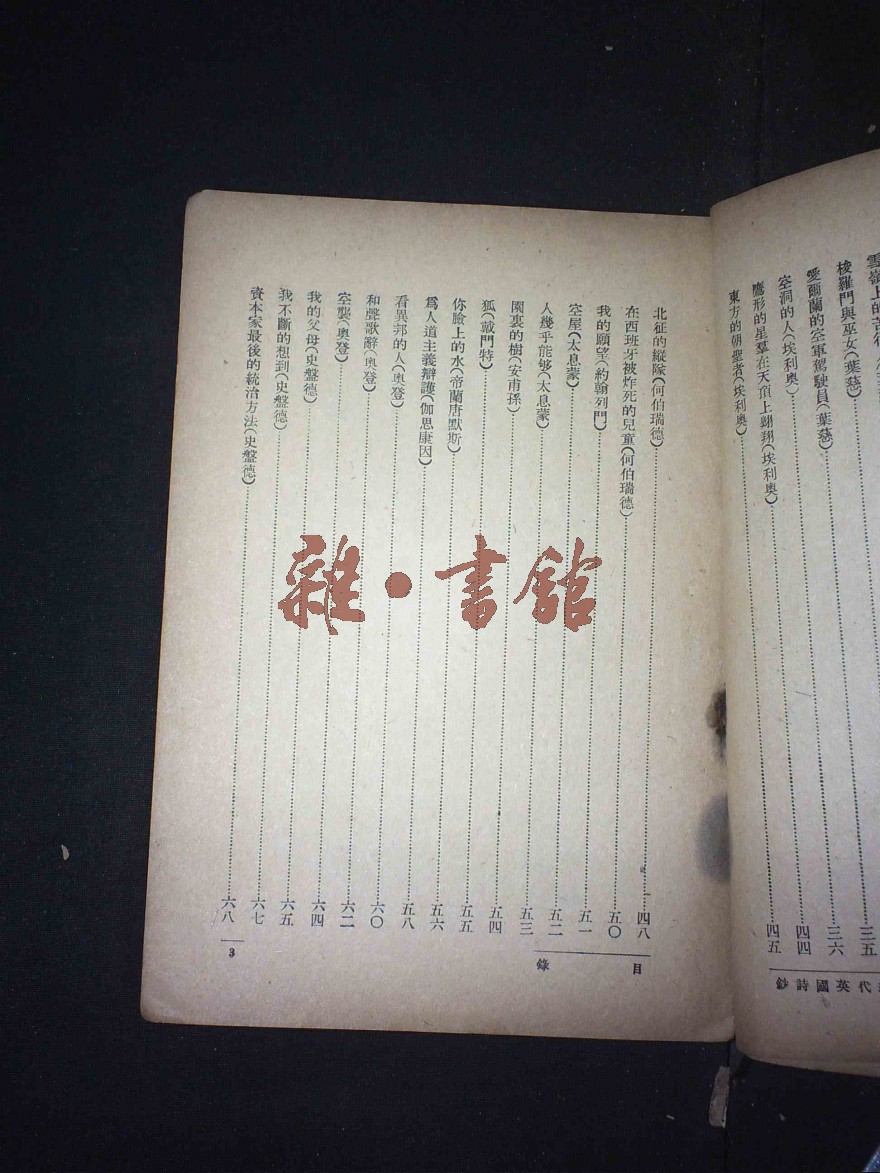 梭羅門與巫女(葉慈)
愛爾蘭的空軍駕駛員(葉慈)……三五
空洞的人(埃利奧)……三六
鷹形的星羣在天頂上翺翔(埃利奧)……四四
東方的朝聖者(埃利奧)……四五
鈔詩國英代
北征的縱隊(何伯瑞德)……四八
在西班牙被炸死的兒童(何伯瑞德)……五〇
我的願望(約翰列門)……五一
空屋(太息蒙)……五二
人幾乎能够(太息蒙)……五三
園裏的樹(安甫孫)……五四
狐(戴門特)……五五
你臉上的水(帝蘭唐默斯)……五六
爲人道主義辯護(伽思康因)……五八
看異邦的人(奧登)……六〇
和聲歌辭(奧登)……六二
空襲(奧登)……六四
我的父母(史盤德)……六五
我不斷的想到(史盤德)……六七
資本家最後的統治方法(史盤德)……六八
錄目
3
雜·書館